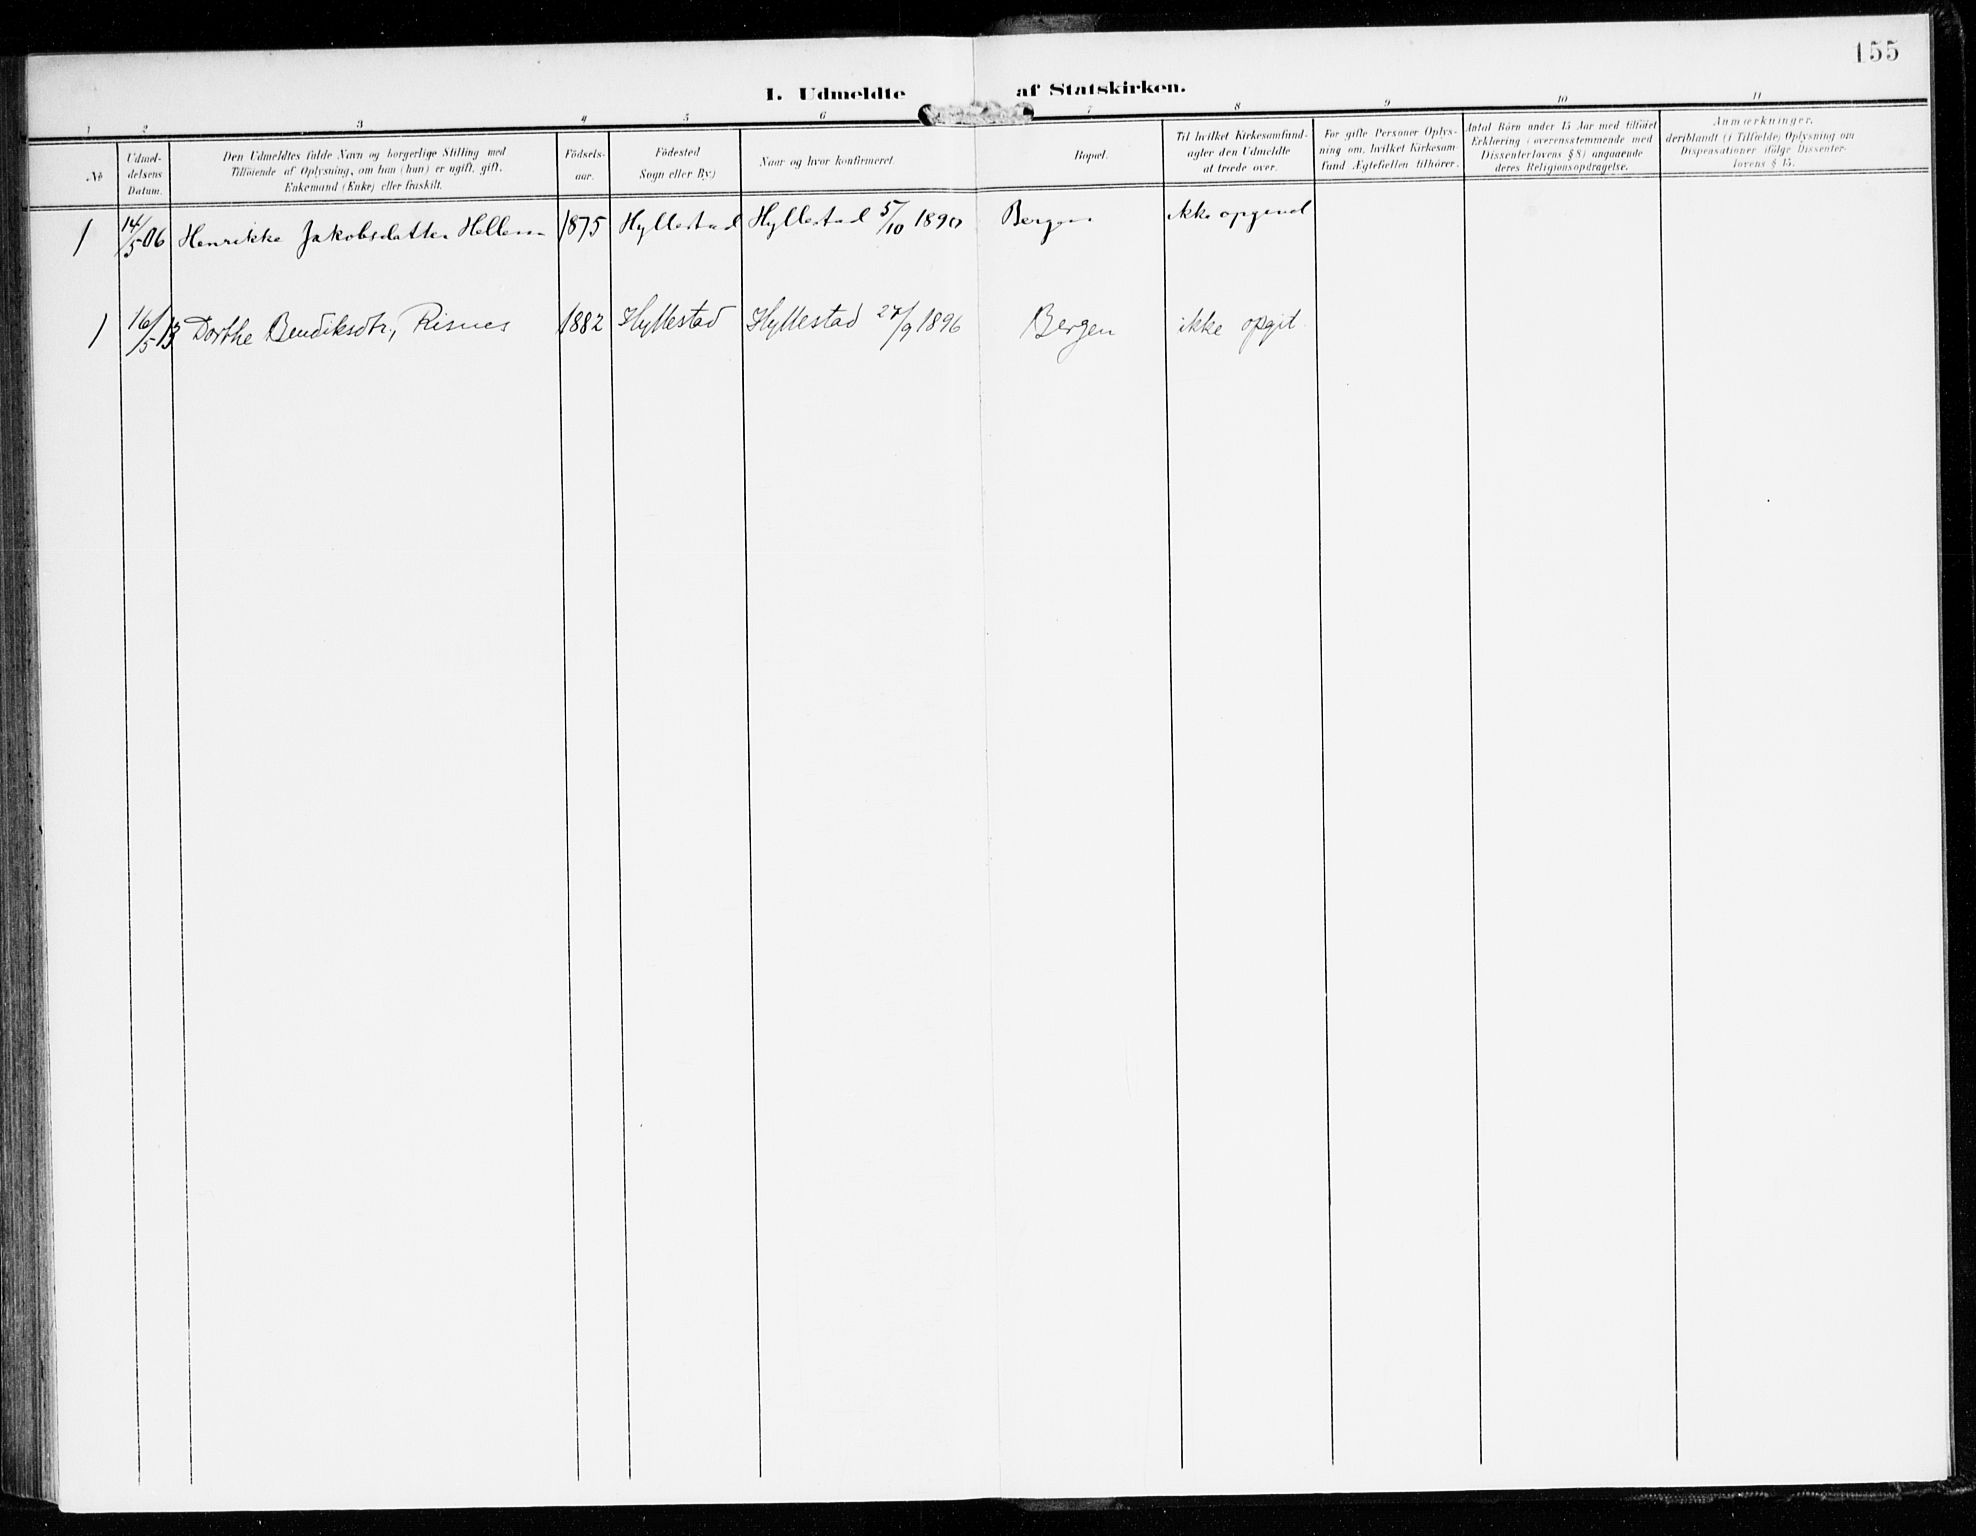 155
I. Udmeldte af Statskirken.
1 2 3 4 5 6 7 8 9 10 11
No
Udmel-
delsens
Datum.
Den Udmeldtes fulde Navn og borgerlige Stilling med
Tilföiende af Oplysning, om han (hun) er ugift, gift,
Enkemand (Enke) eller fraskilt.
Födsels-
aar.
Födested
Sogn eller By.)
Naar og hvor konfirmeret.
Bopæl.
Til hvilket Kirkesamfund-
agter den Udmeldte
at træde over.
For gifte Personer Oplys-
ning om, hvilket Kirkesam-
fund Ægtefællen tilhörer.
Antal Börn under 15 Aar med tilföiet
Erklæring (overensstemmende med
Dissenterlovens § 8) angaaende
deres Religionsopdragelse.
Anmærkninger,
deriblandt (i Tilfælde) Oplysning om
Dispensationer ifölge Dissenter-
lovens § 15.
1 14/5 06 Henrikke Jakobsdatter Hellem 1875 Hyllestad Hyllestad 5/10 1890 Bergen ikke opgivet
1 16/5 13 Dorthe Bendiksdtr, Risnes 1882 Hyllestad Hyllestad 27/9 1896 Bergen ikke opgit.